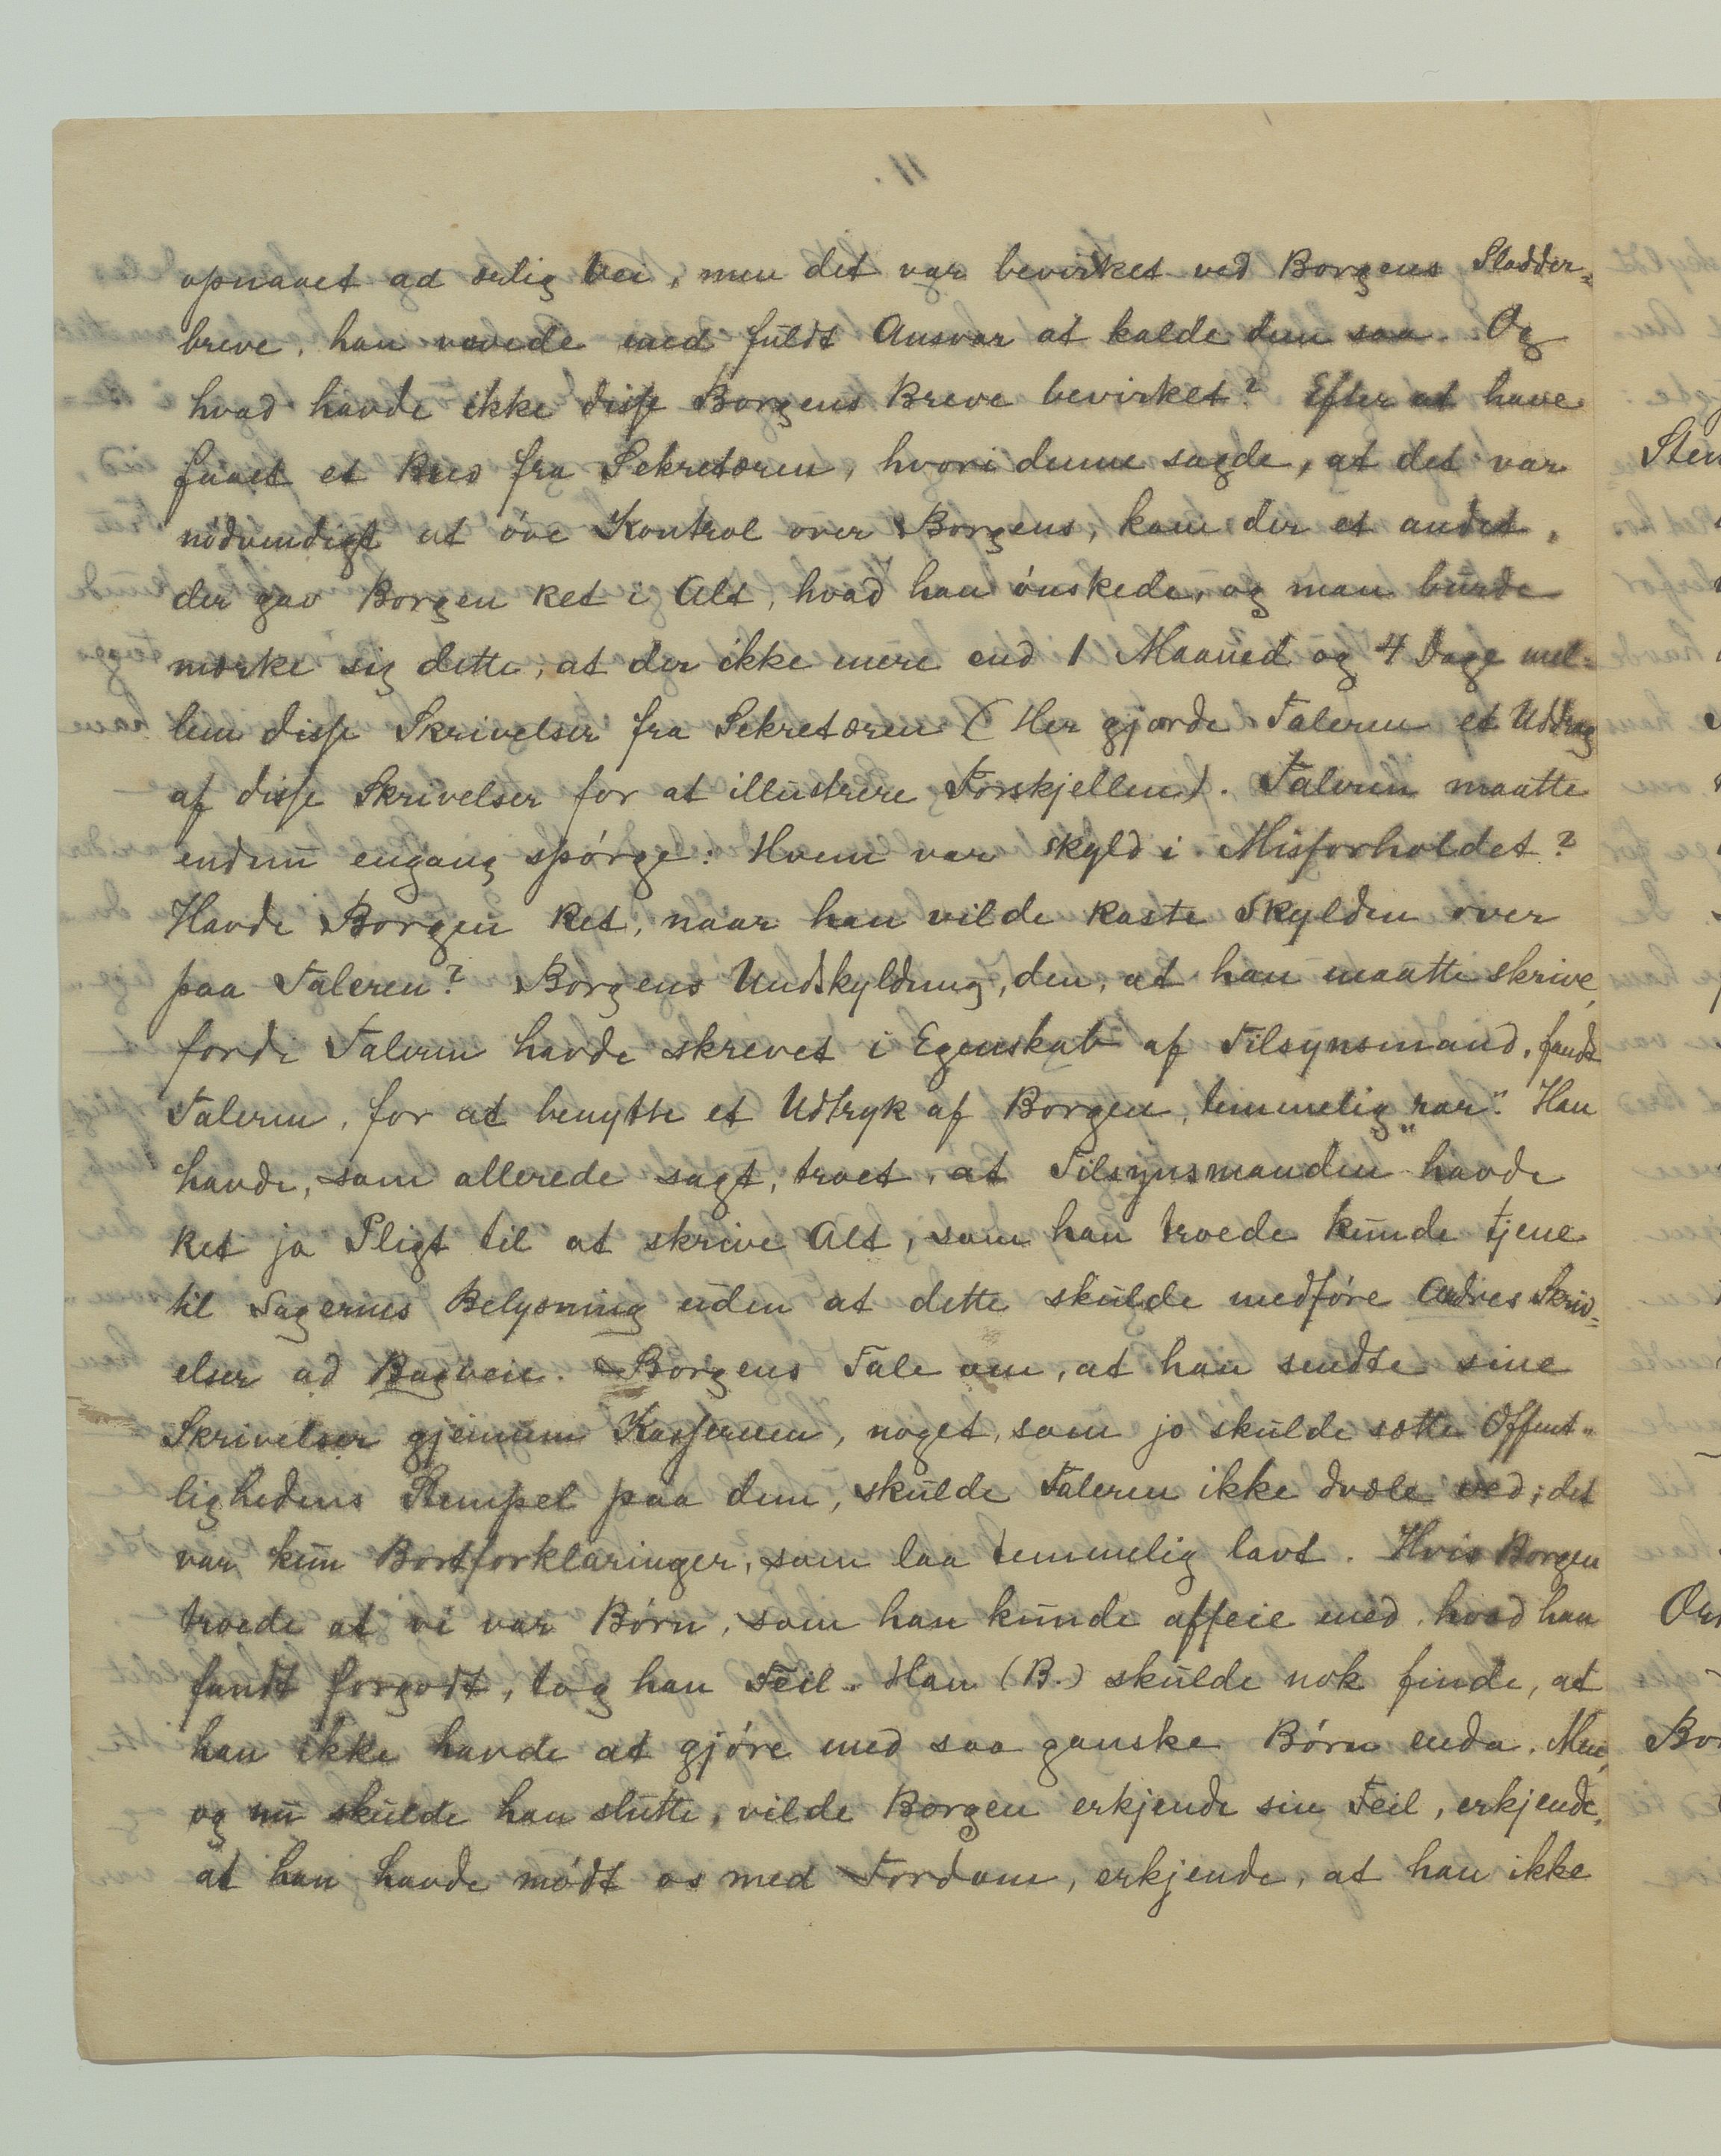 11.
opnaaet ad ærlig Vei, men det var bevirket ved Borgens Sladder=
breve, han vovede med fuldt Ansvar at kalde dem saa. Og
hvad havde ikke disse Borgens Breve bevirket? Efter at have
faaet et Brev fra Sekretæren, hvori denne sagde, at det var
nödvendigt at öve Kontrol over Borgens, kom der et andet,
der gav Borgen Ret i Alt, hvad han önskede, og man burde
mærke sig dette, at der ikke mere end 1 Maaned og 4 Dage mel=
lem disse Skrivelser fra Sekretæren (Her gjorde Taleren et Uddrag
af disse Skrivelser for at illustrere Forskjellen). Taleren maatte
endnu engang spörge: Hvem var skyld i Misforholdet?
Havde Borgen Ret, naar han vilde kaste Skylden over
paa Taleren? Borgens Undskyldning, den, at han maatte skrive,
fordi Taleren havde skrevet i Egenskab af Tilsynsmand, fandt
Taleren, for at benytte et Udtryk af Borgen, temmelig „rar". Han
havde, som allerede sagt, troet, at Tilsynsmanden havde
Ret ja Pligt til at skrive Alt, som han troede kunde tjene
til Sagernes Belysning uden at dette skulde medföre Andres Skriv=
elser ad Bagveie. Borgens Tale om, at han sendte sine
Skrivelser gjennem Kassereren, noget, som jo skulde sætte Offent=
lighedens Stempel paa dem, skulde Taleren ikke dvæle ved; det
var kun Bortforklaringer, som laa temmelig lavt. Hvis Borgen
troede at vi var Börn, som han kunde affeie med, hvad han
fandt forgodt, tog han Feil. Han (B.) skulde nok finde, at
han ikke havde at gjöre med saa ganske Börn enda. Men,
og nu skulde han slutte, vilde Borgen erkjende sin Feil, erkjende,
at han havde mödt os med Fordom, erkjende, at han ikke